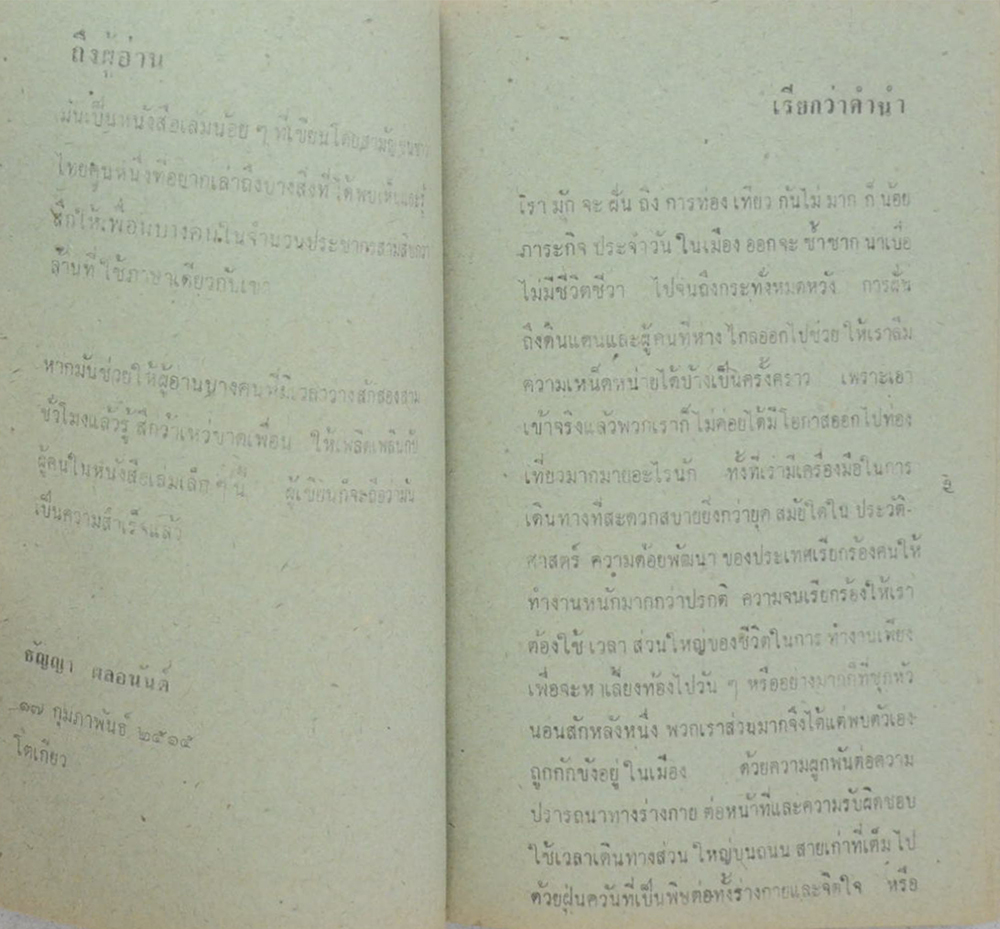 ถึงผู้อ่าน
มันเป็นหนังสือเล่มน้อย ๆ ที่เขียนโดยสามัญชนชาว
ไทยคนหนึ่งที่อยากเล่าถึงบางสิ่งที่ได้พบเห็นและรู้
สึกให้เพื่อนบางคนในจำนวนประชากรสามสิบกว่า
ล้านที่ใช้ภาษาเดียวกับเขา
หากมันช่วยให้ผู้อ่านบางคนที่มีเวลาว่างสักสองสาม
ชั่วโมงแล้วรู้สึกว้าเหว่ขาดเพื่อน ให้เพลิดเพลินกับ
ผู้คนในหนังสือเล่มเล็ก ๆ นี้ ผู้เขียนก็จะถือว่ามัน
เป็นความสำเร็จแล้ว
ธัญญา ผลอนันต์
๑๗ กุมภาพันธ์ ๒๕๑๕
โตเกียว
เรียกว่าคำนำ
เรา มัก จะ ฝัน ถึง การท่อง เที่ยว กันไม่ มาก ก็ น้อย
ภาระกิจ ประจำวัน ในเมือง ออกจะ ซ้ำซาก น่าเบื่อ
ไม่มีชีวิตชีวา ไปจนถึงกระทั่งหมดหวัง การฝัน
ถึงดินแดนและผู้คนที่ห่าง ไกลออกไปช่วย ให้เราลืม
ความเหน็ดหน่ายได้บ้างเป็นครั้งคราว เพราะเอา
เข้าจริงแล้วพวกเราก็ ไม่ค่อยได้มี โอกาสออกไปท่อง
เที่ยวมากมายอะไรนัก ทั้งที่เรามีเครื่องมือในการ
เดินทางที่สะดวกสบายยิ่งกว่ายุค สมัยใดใน ประวัติ-
ศาสตร์ ความด้อยพัฒนา ของประเทศเรียกร้องคนให้
ทำงานหนักมากกว่าปรกติ ความจนเรียกร้องให้เรา
ต้องใช้ เวลา ส่วนใหญ่ของชีวิตในการ ทำงานเพียง
เพื่อจะหาเลี้ยงท้องไปวัน ๆ หรืออย่างมากก็ที่ซุกหัว
นอนสักหลังหนึ่ง พวกเราส่วนมากจึงได้แต่พบตัวเอง
ถูกกักขังอยู่ ในเมือง ด้วยความผูกพันต่อความ
ปรารถนาทางร่างกาย ต่อหน้าที่และความรับผิดชอบ
ใช้เวลาเดินทางส่วน ใหญ่บนถนน สายเก่าที่เต็ม ไป
ด้วยฝุ่นควันที่เป็นพิษต่อทั้งร่างกายและจิตใจ หรือ